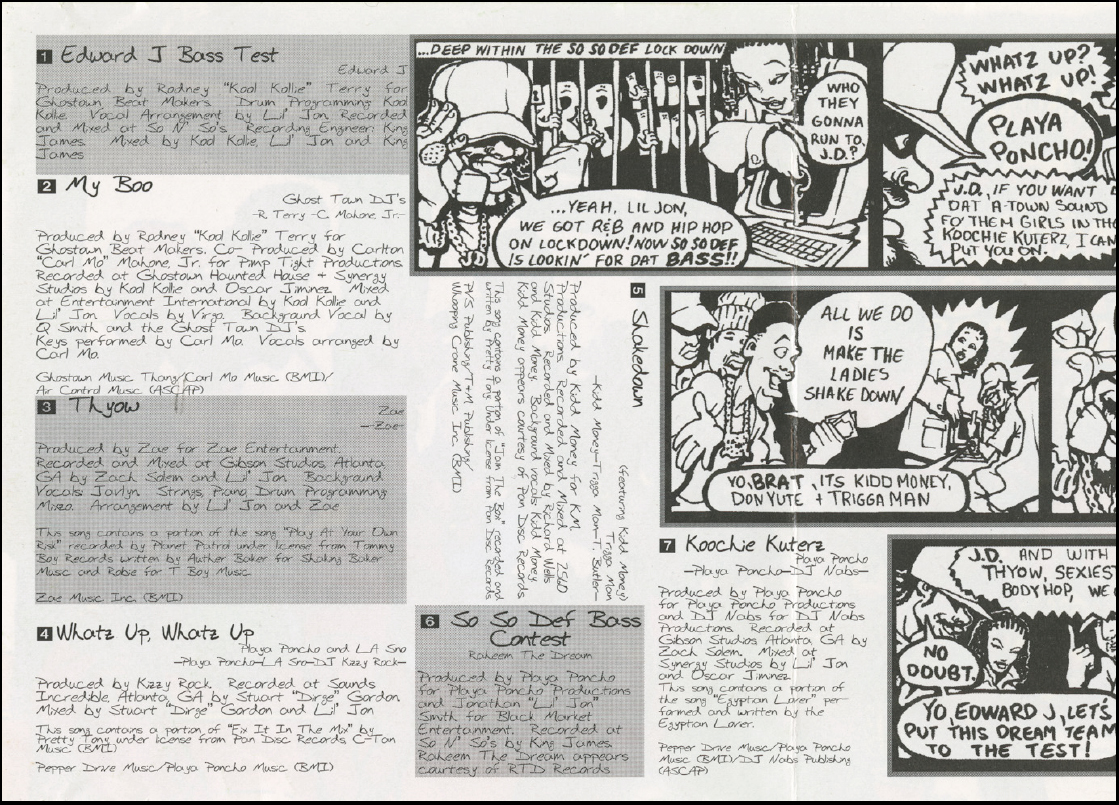 1 Edward J Bass Test
Edward J
Produced by Rodney "Kool Kollie" Terry for
Ghostown Beat Makers. Drum Programming Kool
Kollie. Vocal Arrangement by Lil' Jon, Recorded
and Mixed at So N' So's. Recording Engineer: King
James. Mixed by Kool Kollie, Lil' Jon and King
James
2 My Boo
Ghost Town DJ's
-R. Terry -C. Mahone Jr.-
Produced by Rodney "Kool Kollie" Terry for
Ghostown Beat Makers. Co- Produced by Carlton
"Carl Mo" Mahone, Jr. for Pimp Tight Productions.
Recorded at Ghostown Haunted House + Synergy
Studios by Kool Kollie and Oscar Jiminez. Mixed
at Entertainment International by Kool Kollie and
Lil' Jon. Vocals by Virgo. Background Vocal by
Q Smith and the Ghost Town DJ's.
Keys performed by Carl Mo. Vocals arranged by
Carl Mo.
Ghostown Music Thang/Carl Mo Music (BMI)/
Air Control Music (ASCAP)
3 Thyow
Zae
-Zae-
Produced by Zae for Zae Entertainment.
Recorded and Mixed at Gibson Studios, Atlanta,
GA by Zach Solem and Lil' Jon. Background
Vocals: Jovlyn. Strings, Piano, Drum Programming:
Mirza. Arrangement by Lil' Jon and Zae
This song contains a portion of the song "Play At Your Own
Risk" recorded by Planet Patrol under license from Tommy
Boy Records written by Auther Baker for Shaking Baker
Music and Robie for T Boy Music.
Zae Music Inc. (BMI)
4 Whatz Up, Whatz Up
Playa Poncho and LA Sno
-Playa Poncho-LA Sno-DJ Kizzy Rock-
Produced by Kizzy Rock. Recorded at Sounds
Incredible, Atlanta, GA by Stuart "Dirge" Gordon
Mixed by Stuart "Dirge" Gordon and Lil' Jon
This song contains a portion of "Fix It In The Mix" by
Pretty Tony under license from Pan Disc Records, C-Ton
Music (BMI)
Pepper Drive Music/Playa Poncho Music (BMI)
...DEEP WITHIN THE SO SO DEF LOCK DOWN
R&B HIPHOP
WHO
THEY
GONNA
RUN TO,
J.D.?
...YEAH, LIL JON,
WE GOT R&B AND HIP HOP
ON LOCKDOWN! NOW SO SO DEF
IS LOOKIN' FOR DAT BASS!!
WHATZ UP?
WHATZ UP!
PLAYA
PONCHO!
J.D., IF YOU WANT
DAT A-TOWN SOUND
FO' THEM GIRLS IN TH
KOOCHIE KUTERZ, I CAN
PUT YOU ON.
5 Shakedown
(featuring Kidd Money)
Trigga Man
-Kidd Money-Trigga Man-T. Butler-
Produced by Kidd Money for K.M.
Productions. Recorded and Mixed at 2540
Studios. Recorded and Mixed by Richard Wells
and Kidd Money. Background vocals: Kidd Money.
Kidd Money appears courtesy of Pan Disc Records.
This song contains a portion of "Jam The Box" recorded and
written by Pretty Tony under license from Pan Disc Records
PVS Publishing/T-M Publishing/
Whooping Crane Music Inc. (BMI)
ALL WE DO
IS
MAKE THE
LADIES
SHAKE DOWN
YO, BRAT, ITS KIDD MONEY,
DON YUTE + TRIGGA MAN
6 So So Def Bass
Contest
Raheem The Dream
Produced by Playa Poncho
for Playa Poncho Productions
and Jonathan "Lil' Jon"
Smith for Black Market
Entertainment. Recorded at
So N' So's by King James.
Raheem The Dream appears
courtesy of RTD Records
7 Koochie Kuterz
Playa Poncho
-Playa Poncho-DJ Nabs-
Produced by Playa Poncho
for Playa Poncho Productions
and DJ Nabs for DJ Nabs
Productions. Recorded at
Gibson Studios Atlanta, GA by
Zach Solem. Mixed at
Synergy Studios by Lil' Jon
and Oscar Jiminez
This song contains a portion of
the song "Egyptian Lover" per-
formed and written by the
Egyptian Lover.
Pepper Drive Music/Playa Poncho
Music (BMI)/DJ Nabs Publishing
(ASCAP)
J.D. AND WITH
THYOW, SEXIES
BODY HOP, WE
NO
DOUBT.
YO, EDWARD J, LET'S
PUT THIS DREAM TEAM
TO THE TEST!